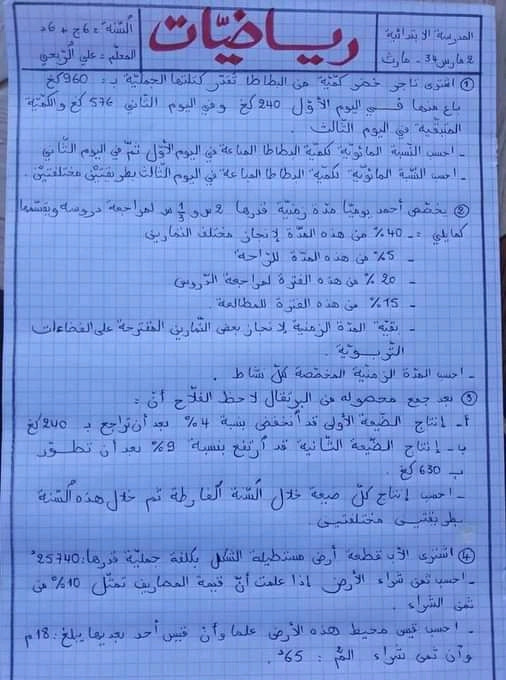 المدرسة الابتدائية
2 مارس 34 - مارث
رياضيّات
السّنة: 6ج + 6د
المعلّم: علي الرّبحي
① اشترى تاجر خضر كمّية من البطاطا تقدّر كتلتها الجمليّة بـ: 960كغ
باع منها في اليوم الأوّل 240كغ وفي اليوم الثاني 576كغ والكمّيّة
المتبقّية في اليوم الثالث.
- احسب النّسبة المائويّة لكميّة البطاطا المباعة في اليوم الأوّل ثمّ في اليوم الثّاني
- احسب النّسبة المائويّة لكميّة البطاطا المباعة في اليوم الثّالث بطريقتين مختلفتين.
② يخصّص أحمد يوميّا مدّة زمنيّة قدرها 2س و 1/3 س لمراجعة دروسه ويقسّمها
كمايلي: - 40% من هذه المدّة لإنجاز مختلف التّمارين
- 5% من هذه المدّة للرّاحة
- 20% من هذه الفترة لمراجعة الدّروس
- 15% من هذه الفترة للمطالعة.
- بقيّة المدّة الزمنيّة لإنجاز بعض التّمارين المقترحة على الفضاءات
التّربويّة.
- احسب المدّة الزمنيّة المخصّصة لكلّ نشاط.
③ بعد جمع محصوله من البرتقال لاحظ الفلّاح أنّ:
أ- إنتاج الضّيعة الأولى قد انخفض بنسبة 4% بعد أن تراجع بـ 240كغ
ب- إنتاج الضّيعة الثّانية قد ارتفع بنسبة 9% بعد أن تطوّر
ب 630كغ.
- احسب إنتاج كلّ ضيعة خلال السّنة الفارطة ثم خلال هذه السّنة
بطريقتين مختلفتين.
④ اشترى الأب قطعة أرض مستطيلة الشكل بكلفة جمليّة قدرها: 25740د
- احسب ثمن شراء الأرض إذا علمت أنّ قيمة المصاريف تمثّل 10% من
ثمن الشراء.
- احسب قيس محيط هذه الأرض علما وأنّ قيس أحد بعديها يبلغ: 18م
وأن ثمن شراء المّ²: 65د.